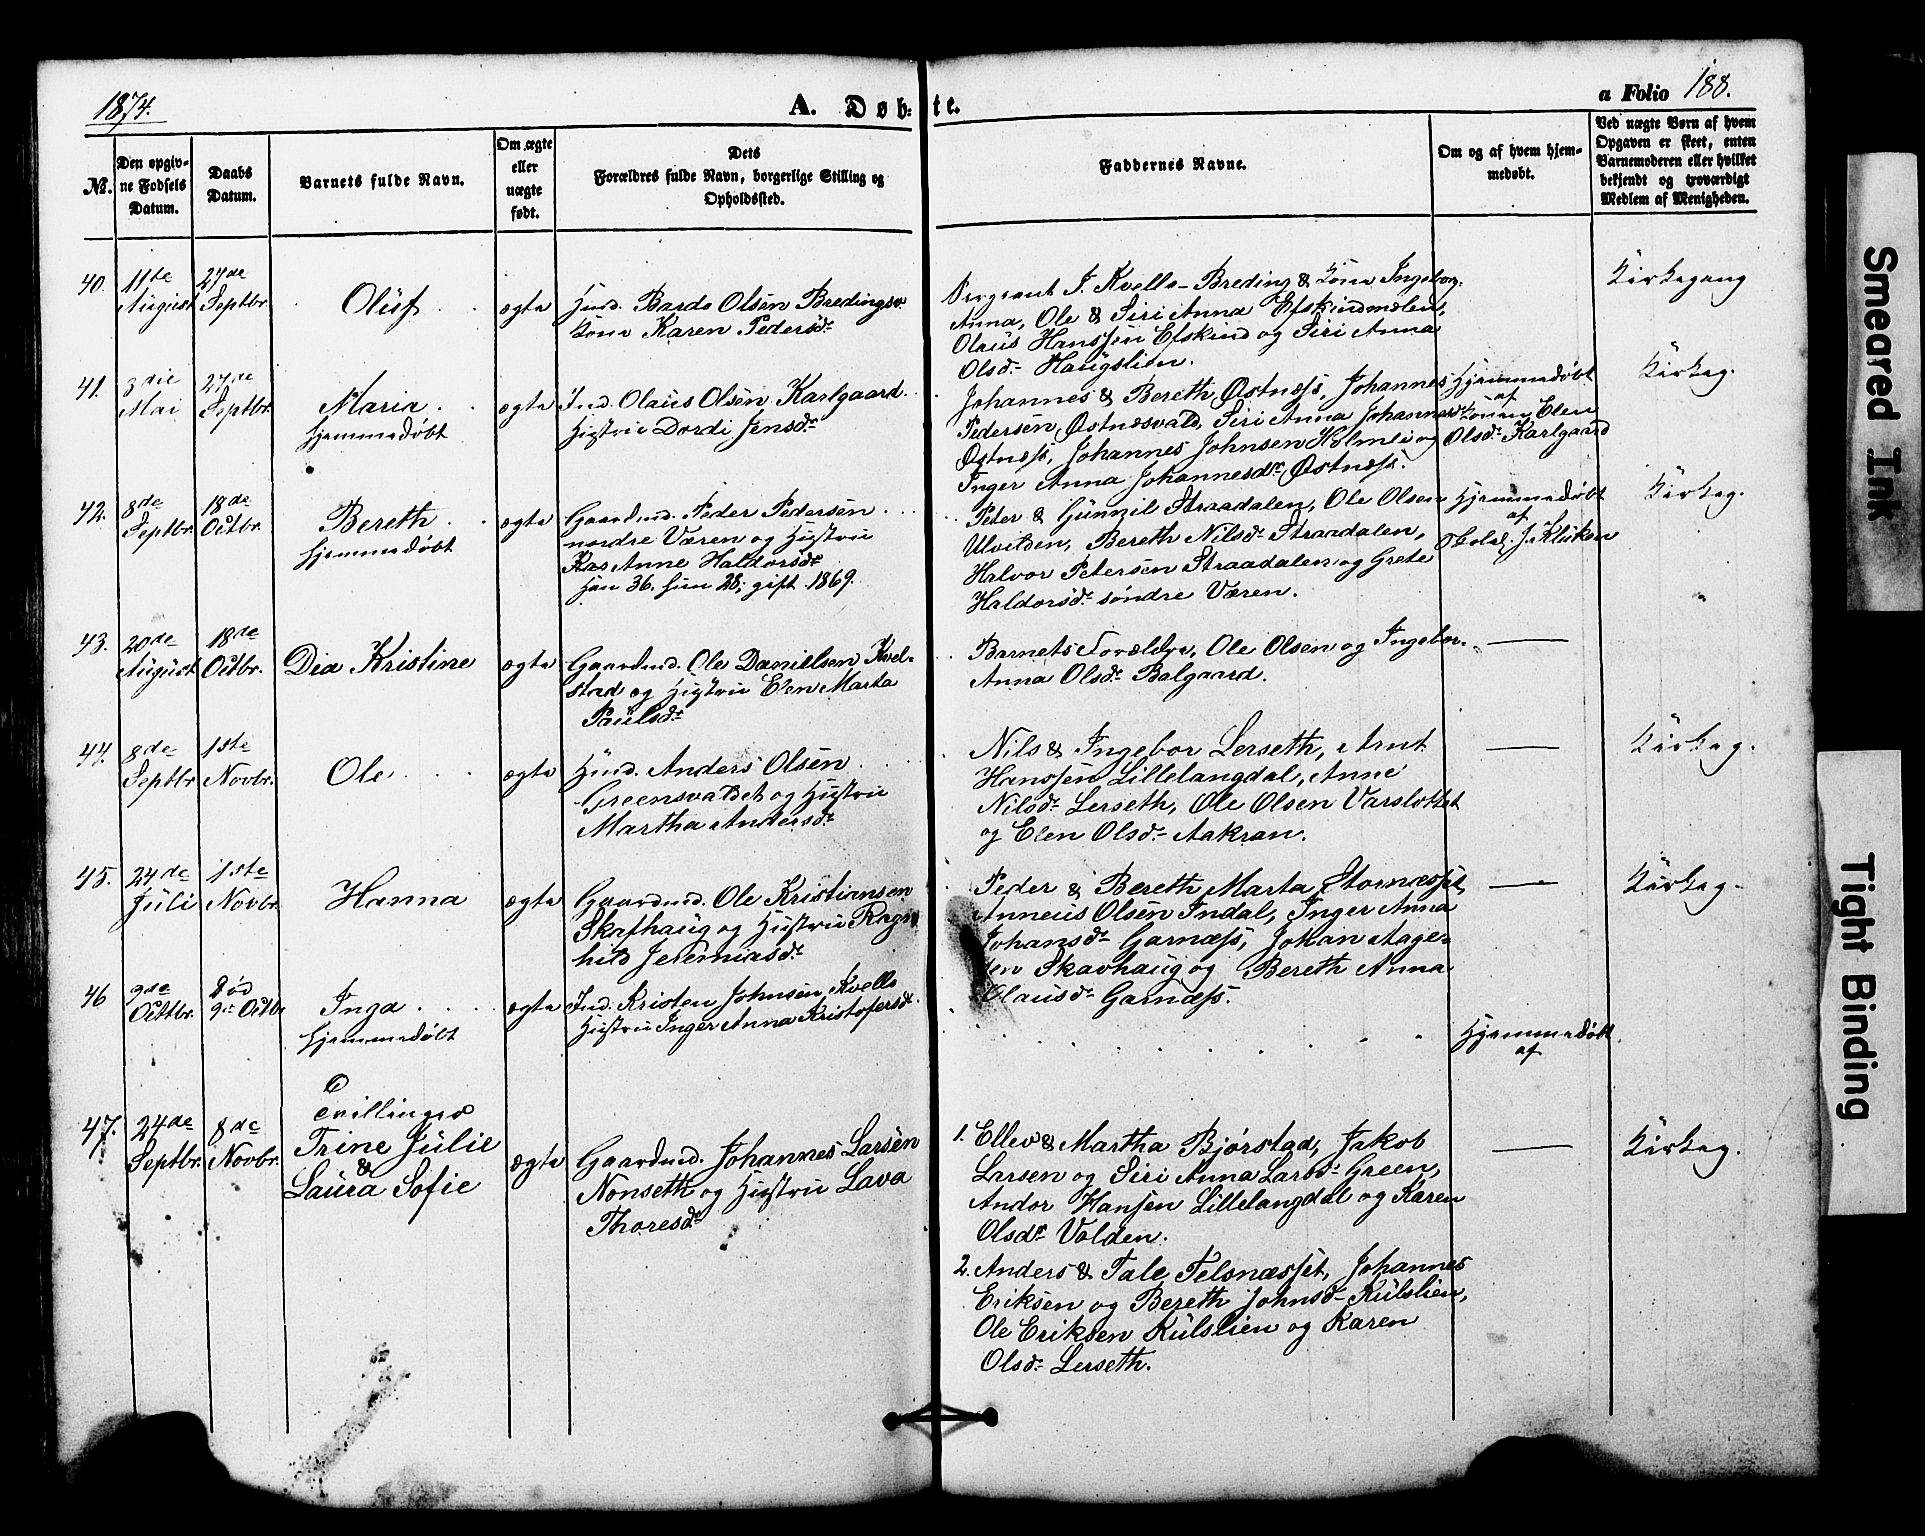 1874.
A. Døb-
te.
a Folio 188.
No.
Den opgiv-
ne Fødsels
Datum.
Daabs
Datum.
Barnets fulde Navn.
Om ægte
eller
uægte
født.
Dets
Forældres fulde Navn, borgerlige Stilling og
Opholdssted.
Faddernes Navne.
Om og af hvem hjem-
medøbt.
Ved uægte Børn af hvem
Opgaven er skeet, enten
Barnemoderen eller hvilket
bekjendt og troværdigt
Medlem af Menigheden.
40.
11te
August
27de
Septbr.
Oluf
ægte
Huusd. Bardo Olsen Bredingsv.
Kone Karen Pedersdr
Sergeant J. Kvello-Breding & Kone Ingebor-
Anna, Ole & Siri Anna Efskindmælen,
Olaus Hanssen Efskind og Siri Anna
Olsdr Haugslien.
Kirkegang
41.
3die
Mai
27de
Septbr.
Maria
hjemmedøbt
ægte
Ind. Olaus Olsen Karlgaard
Hustru Dordi Jensdr
Johannes & Bereth Østnæss, Johannes
Pedersen Østnæsvald, Siri Anna Johannesdr
Østnæss, Johannes Johnsen Holmli og
Inger Anna Johannesdr Østnæss.
Hjemmedøbt
af
Konen Elen
Olsdr Karlgaard
Kirkeg.
42.
8de
Septbr.
18de
Octbr.
Bereth
hjemmedøbt
ægte
Gaardmd. Peder Pedersen
nordre Væren og Hustru
Anne Haldorsdr
Han 36. hun 28; gift 1869.
Peter & Gunnil Straadalen, Ole Olsen
Ulvilden, Bereth Nilsdr Straadalen,
Halvor Petersen Straadalen og Grete
Haldorsdr søndre Væren.
Hjemmedøbt
af
Skolel. J. Kluken
Kirkeg.
43.
20de
August
18de
Octbr.
Dia Kristine
ægte
Gaardmd. Ole Danielsen Kvel-
stad og Hustru Elen Marta
Paulsdr
Barnets Forældre, Ole Olsen og Ingebor-
Anna Olsdr Balgaard.
44.
8de
Septbr.
1ste
Novbr.
Ole
ægte
Husmd. Anders Olsen
Greensvaldet og Hustru
Martha Andersdr
Nils & Ingebor Lerseth, Arnt
Hanssen Lillelangdal, Anne
Nilsdr Lerseth, Ole Olsen Varslottet
og Elen Olsdr Aakran.
Kirkeg.
45.
24de
Juli
1ste
Novbr.
Hanna
ægte
Gaardmd. Ole Kristiansen
Skafhaug og Hustru Ragn-
hild Jeremiasdr
Peder & Bereth Marta Stornæsset,
Anneus Olsen Indal, Inger Anna
Johansdr Garnæss, Johan Aage-
sen Skavhaug og Bereth Anna
Olausdr Garnæss.
Kirkeg.
46
9de
Octbr.
Død
9de Octbr.
Inga
hjemmedøbt
ægte
Ind. Kristen Johnsen Kvello
Hustru Inger Anna Kristofersdr
Hjemmedøbt
af
47.
24de
Septbr.
8de
Novbr.
Tvillinger
Trine Julie
&
Laura Sofie
ægte
Gaardmd. Johannes Larsen
Nonseth og Hustru Lava
Thoresdr
1. Ellev & Martha Bjørstad, Jakob
Larsen og Siri Anna Larsdr Green,
Andor Hansen Lillelangdal og Karen
Olsdr Volden.
2. Anders & Tale Telsnæsset, Johannes
Eriksen og Bereth Johnsdr Kulslien,
Ole Eriksen Kulslien og Karen
Olsdr Lerseth.
Kirkeg.
Smeared Ink
Tight Binding